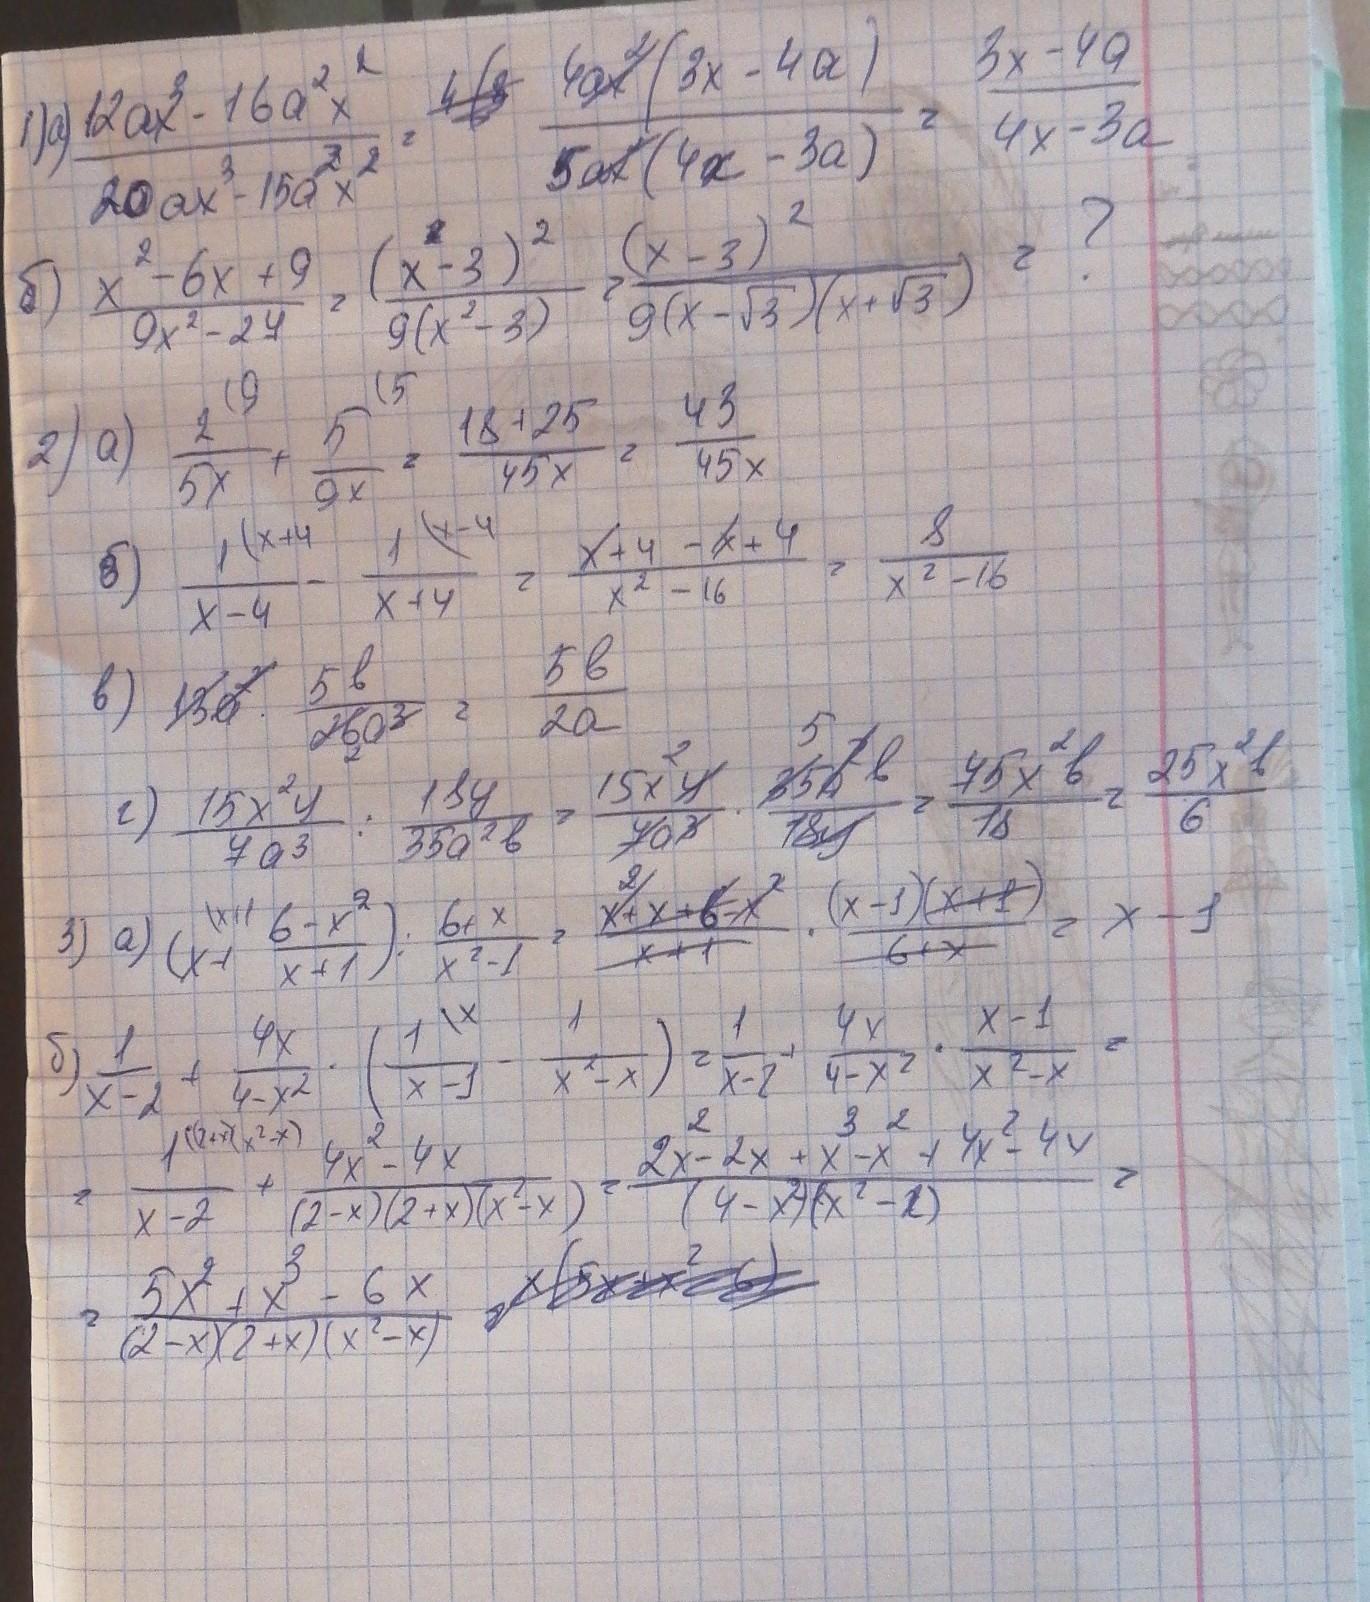 1) а) (12ax³ - 16a²x²)/(20ax³ - 15a²x²) = 4ax²(3x - 4a)/5ax²(4x - 3a) = (3x - 4a)/(4x - 3a)
б) (x² - 6x + 9)/(9x² - 27) = (x - 3)²/9(x² - 3) = (x - 3)²/9(x - √3)(x + √3) = ?
2) а) 2(9/5x + 5(5/9x = (18 + 25)/45x = 43/45x
б) 1(x+4/(x - 4) - 1(x-4/(x + 4) = (x + 4 - x + 4)/(x² - 16) = 8/(x² - 16)
в) 13a² · 5b/26a³ = 5b/2a
г) 15x²y/7a³ : 18y/35a²b = 15x²y/7a³ · 35a²b/18y = 75x²b/18 = 25x²b/6
3) а) (x+ (6 - x²)/(x + 1)) : (6 + x)/(x² - 1) = (x² + x + 6 - x²)/(x + 1) · (x - 1)(x + 1)/(6 + x) = x - 1
б) 1/(x - 2) + 4x/(4 - x²) · (1(x/(x - 1) - 1/(x² - x)) = 1/(x - 2) + 4x/(4 - x²) · (x - 1)/(x² - x) =
= 1((2+x)(x²-x)/(x - 2) + (4x² - 4x)/(2 - x)(2 + x)(x² - x) = (2x² - 2x + x³ - x² + 4x² - 4x)/(4 - x²)(x² - x) =
= (5x² + x³ - 6x)/(2 - x)(2 + x)(x² - x)